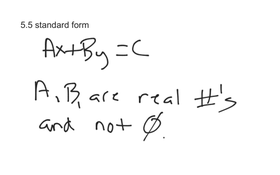 5.5 standard form
Ax+By=C
A, B, are real #'s
and not Ø.